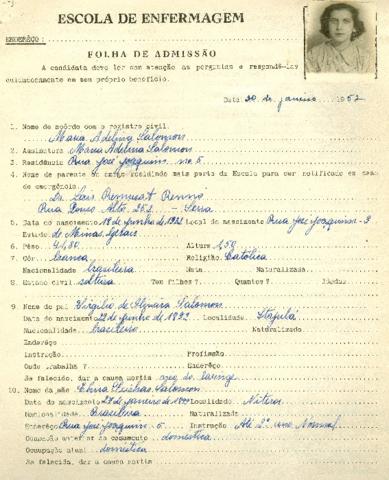 ESCOLA DE ENFERMAGEM
ENDERÊÇO:
FOLHA DE ADMISSÃO
A candidata deve ler com atenção as perguntas e respondê-las
cuidadosamente em seu próprio benefício.
Data: 20 de janeiro 1952
1. Nome de acôrdo com o registro civil
Maria Adelina Salomon
2. Assinatura Maria Adelina Salomon
3. Residência Rua José Joaquim no 5
4. Nome de parente ou amigo residindo mais perto da Escola para ser notificado em caso
de emergência.
Dr. Luis Rennó
Rua Pouso Alto, 252 - Serra
5. Data do nascimento 18 de junho de 1932 Local do nascimento Rua José Joaquim -
Estado de Minas Gerais
6. Pêso. Altura 1,50
7. Côr: branca Religião. Católica
Nacionalidade brasileira Nata. Naturalizada.
8. Estado civil. solteira Tem filhos? Quantos? Idades
9. Nome do pai Virgilio de Oliveira Salomon
Data do nascimento 22 de junho de 1892 Localidade. Itajubá
Nacionalidade. brasileiro Naturalizado
Enderêço
Instrução Profissão
Onde trabalha? Enderêço
Se falecido, dar a causa mortis neo. da laringe
10. Nome da mãe Salomon
Data do nascimento 28 de janeiro de Localidade. Niteroi
Nacionalidade. Brasileira Naturalizada
Enderêço Rua José Joaquim - 5 Instrução Até 2º ano Normal
Ocupação anterior ao casamento doméstica
Ocupação atual doméstica
Se falecida, dar a causa mortis